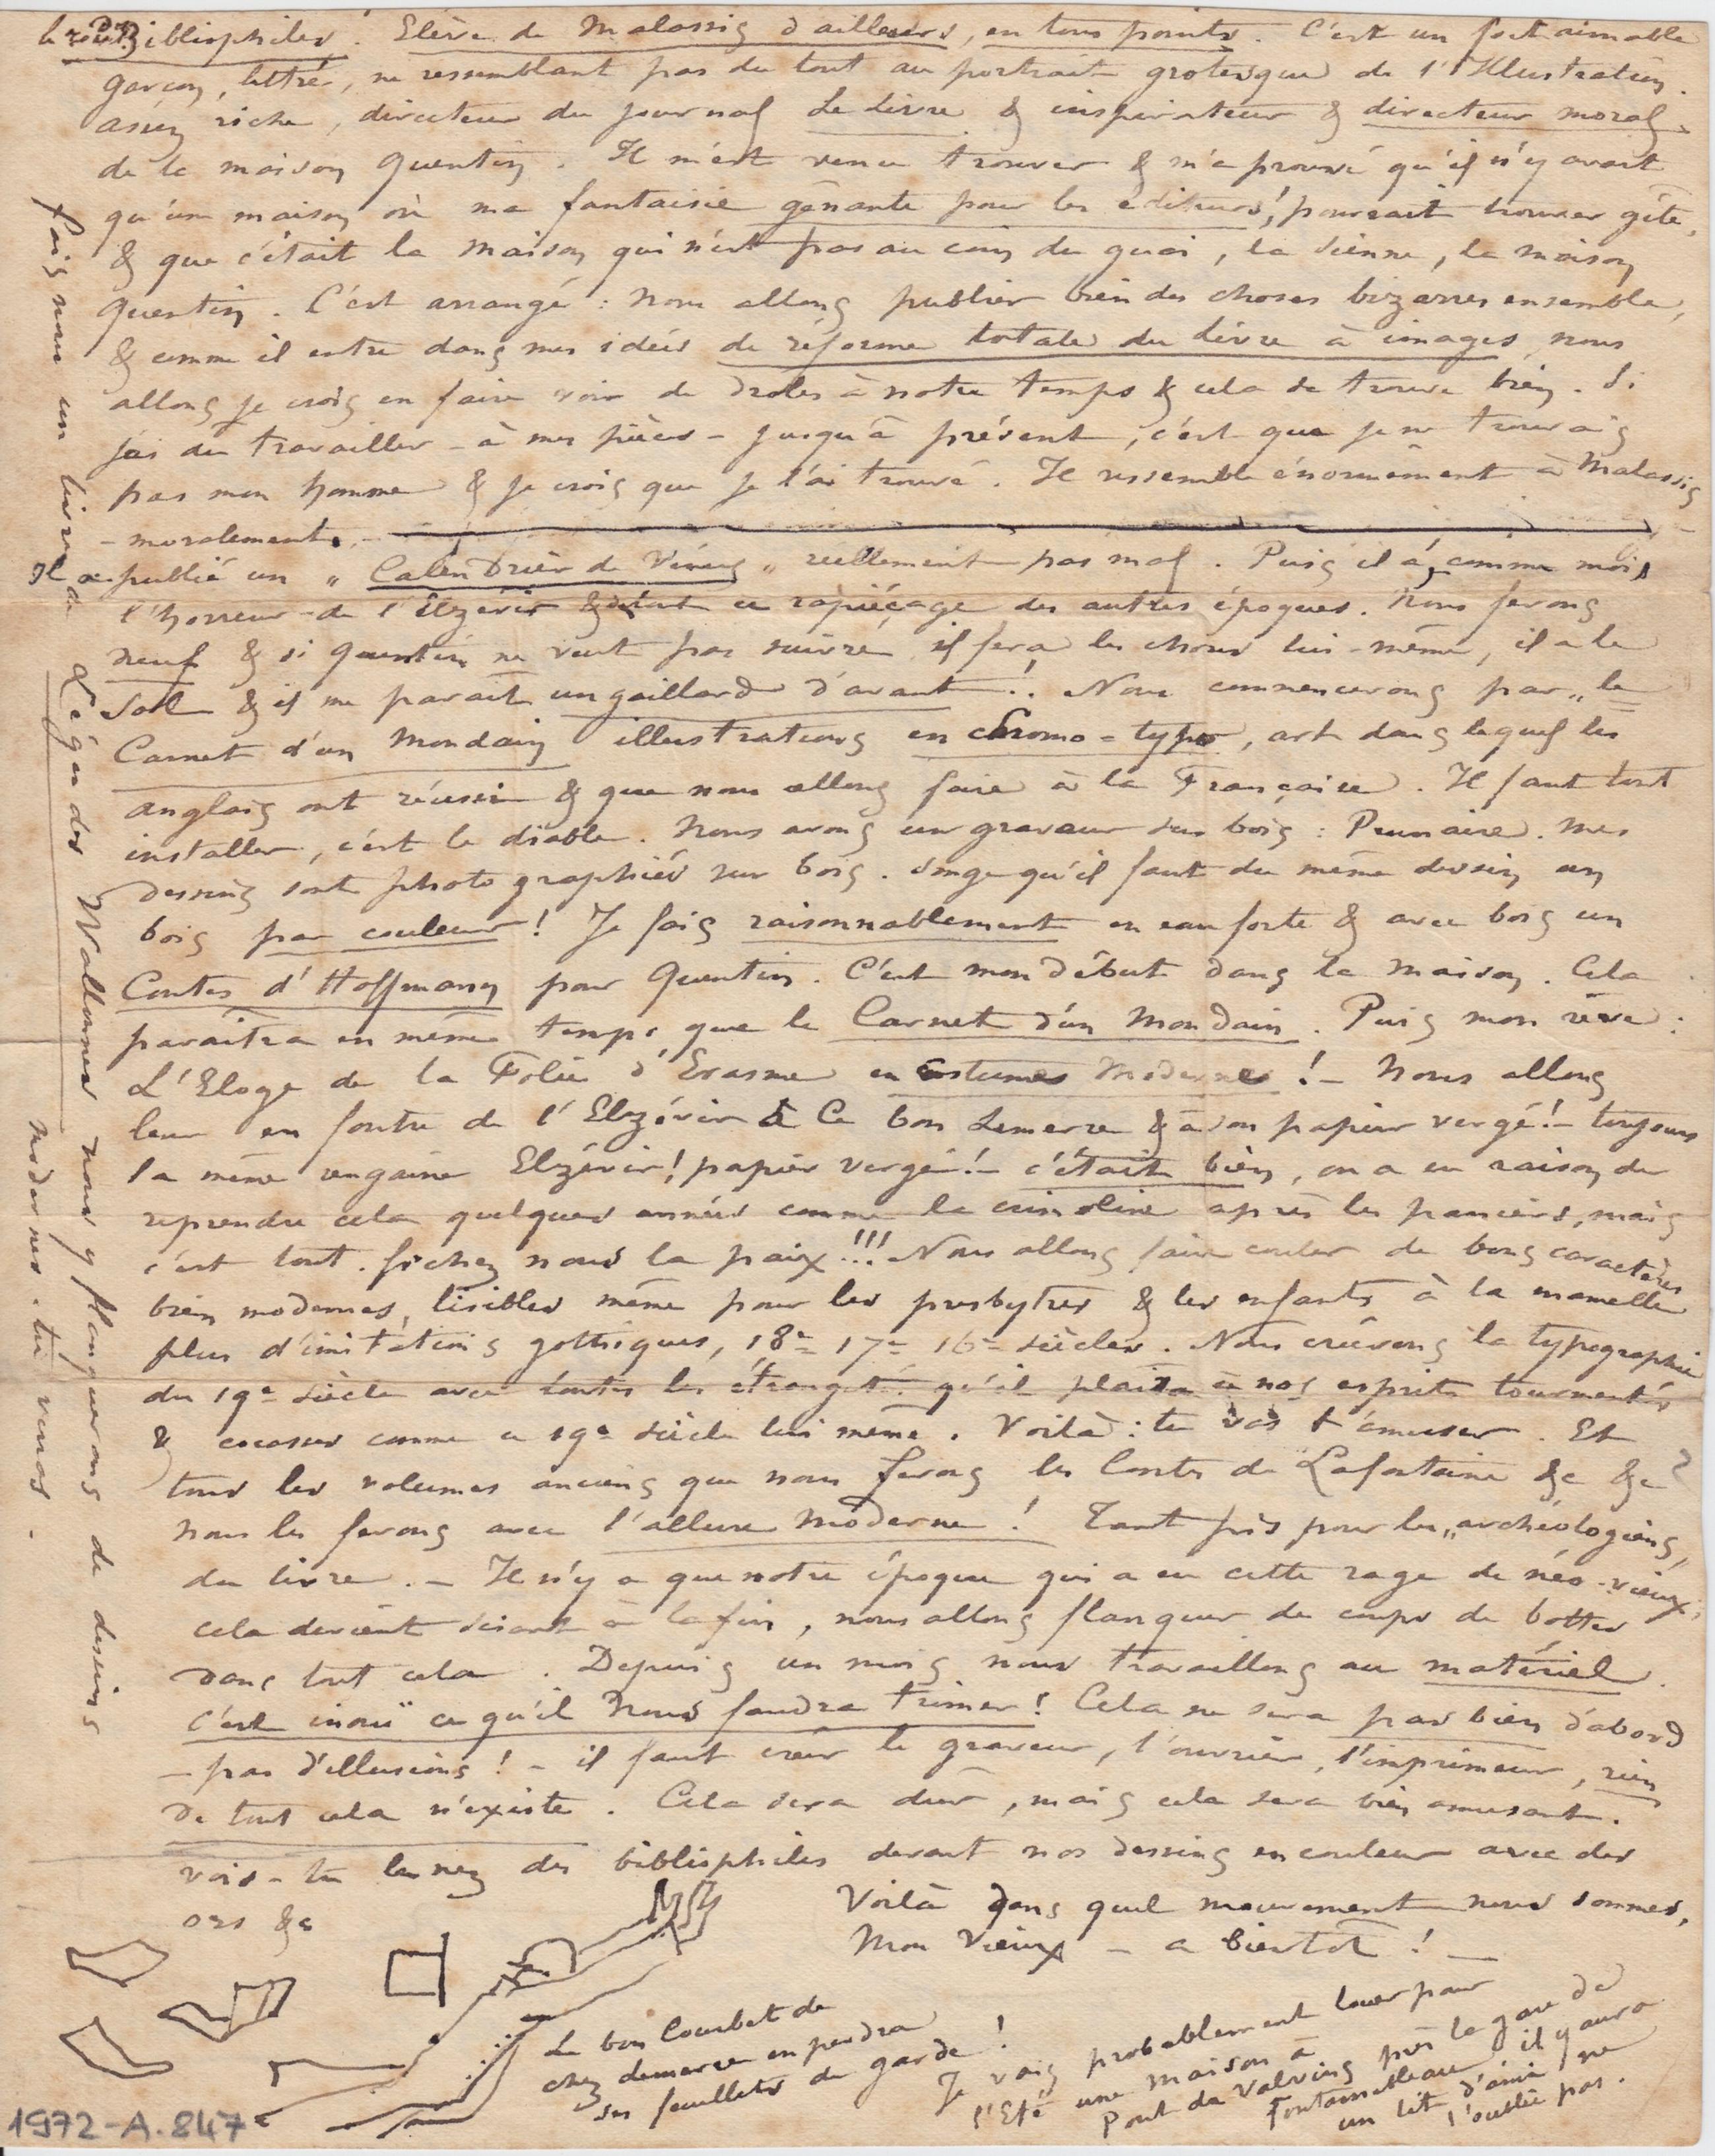 Bibliophiles. Elève de Malassis d'ailleurs, en tous points. C'est un fort aimable
garçon, lettré, ne ressemblant pas du tout au portrait grotesque de l'Illustration.
assez riche, directeur du journal Le Livre & inspirateur & directeur moral
de la maison Quentin. Il m'est venu trouver & m'a prouvé qu'il n'y avait
qu'une maison où ma fantaisie gênante pour les éditeurs! pourrait trouver gîte,
& que c'était la maison qui n'est pas au coin du quai, la sienne, la maison
Quentin. C'est arrangé : nous allons publier bien des choses bizarres ensemble,
& comme il entre dans mes idées de réforme totale du livre à images, nous
allons je crois en faire voir de drôles à notre temps & cela se trouve bien. Si
j'ai du travailler - à mes pièces - jusqu'à présent, c'est que je ne trouvais
pas mon homme & je crois que je l'ai trouvé. Il ressemble énormément à Malassis
- moralement. -
Il a publié un " Calendrier de Vénus " reellement pas mal. Puis il a, comme moi,
l'horreur de l'Elzévir & de tout ce rapiéçage des autres époques. Nous ferons
neuf & si Quentin ne veut pas suivre il fera les choses lui-même, il a le
sol & il me parait un gaillard d'avant !. Nous commencerons par " le
Carnet d'un Mondain illustrations en chromo-typo, art dans lequel les
anglais ont réussi & que nous allons faire à la Française. Il faut tout
installer, c'est le diable. Nous avons un graveur sur bois : Peunaire. mes
dessins sont photographiés sur bois. songe qu'il faut du même dessin un
bois par couleur! Je fais raisonnablement en eau forte & avec bois un
Contes d'Hoffmann pour Quentin. C'est mon début dans la maison. Cela
paraîtra en même temps que le Carnet d'un Mondain. Puis mon rêve :
L'Eloge de la Folie d'Erasme en costumes Modernes ! - Nous allons
leur en foutre de l'Elzévir à Ce bon Lemerre & à son papier vergé! - toujours
la même rengaine Elzévir! papier vergé! - c'était bien, on a eu raison de
reprendre cela quelques années comme la crinoline après les paniers, mais
c'est tout. fichez nous la paix!!! Nous allons faire couler de bons caractères
bien modernes, lisibles même pour les presbytres & les enfants à la mamelle
plus d'imitations gothiques, 18e 17e 16e siècles. Nous créerons la typographie
du 19e siècle avec toutes les étrangetés qu'il plaira à nos esprits tourmentés
& cocasses comme ce 19e siècle lui même. Voilà : tu vas t'amuser. Et
tous les volumes anciens que nous ferons les Contes de Lafontaine &c &c
nous les ferons avec l'allure Moderne ! Tant pis pour les " archéologiens "
du livre. - Il n'y a que notre époque qui a eu cette rage de néo-vieux,
cela devient sciant à la fin, nous allons flanquer des coups de bottes
dans tout cela. Depuis un mois nous travaillons au matériel.
c'est inouï ce qu'il nous faudra trimer! Cela ne sera pas bien d'abord
- pas d'illusions ! - il faut créer le graveur, l'ouvrier, l'imprimeur, rien
de tout cela n'existe. Cela sera dur, mais cela sera bien amusant.
vois-tu le nez des bibliophiles devant nos dessins en couleur avec des
ors &c
Voilà dans quel mouvement nous sommes,
Mon Vieux - a bientôt ! -
Le bon Courbet de
chez Lemerre en perdra
ses feuillets de garde !
Je vais probablement louer pour
l'Eté une maison à
Pont de Valvins près la gare de
Fontainebleau il y aura
un lit d'ami ne
l'oublie pas.
fais nous un livre de Légendes Wallonnes nous y flanquerons de dessins
modernes. tu verras.
1972-A.847